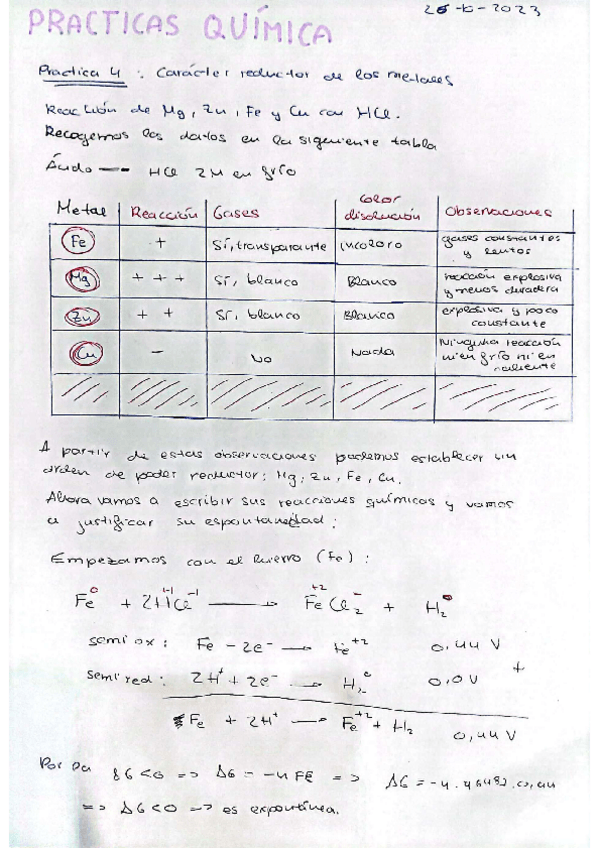 25-10-2023
PRACTICAS QUÍMICA
Practica 4 : Carácter reductor de los metales
Reacción de Mg, Zn, Fe y Cu con HCl.
Recogemos los datos en la siguiente tabla
Ácido — HCl 2M en frío
Metal | Reacción | Gases | Color disolución | Observaciones
Fe | + | Sí, transparante | Incoloro | gases constantes y lentos
Mg | + + + | Sí, blanco | Blanco | reacción explosiva y menos duradera
Zn | + + | Sí, blanco | Blanco | explosiva y poco constante
Cu | - | No | Nada | Ninguna reacción ni en frío ni en caliente
A partir de estas observaciones podemos establecer un
orden de poder reductor: Mg, Zn, Fe, Cu.
Ahora vamos a escribir sus reacciones químicos y vamos
a justificar su espontaneidad:
Empezamos con el hierro (Fe):
Fe⁰ + 2H⁺¹Cl⁻¹ → Fe⁺²Cl₂⁻ + H₂⁰
semi ox: Fe - 2e⁻ → Fe⁺² 0,44 V
semi red: 2H⁺ + 2e⁻ → H₂⁰ 0,0 V +
Fe + 2H⁺ → Fe⁺² + H₂ 0,44 V
Por ΔG<0 => ΔG = -nFE => ΔG = -n.96482.0,44
=> ΔG<0 -> es expontínea.